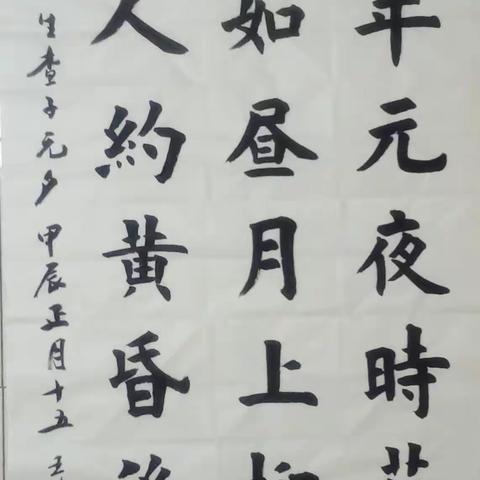 年元夜時花
如晝月上柳
人約黄昏後
生查子元夕 甲辰正月十五 王